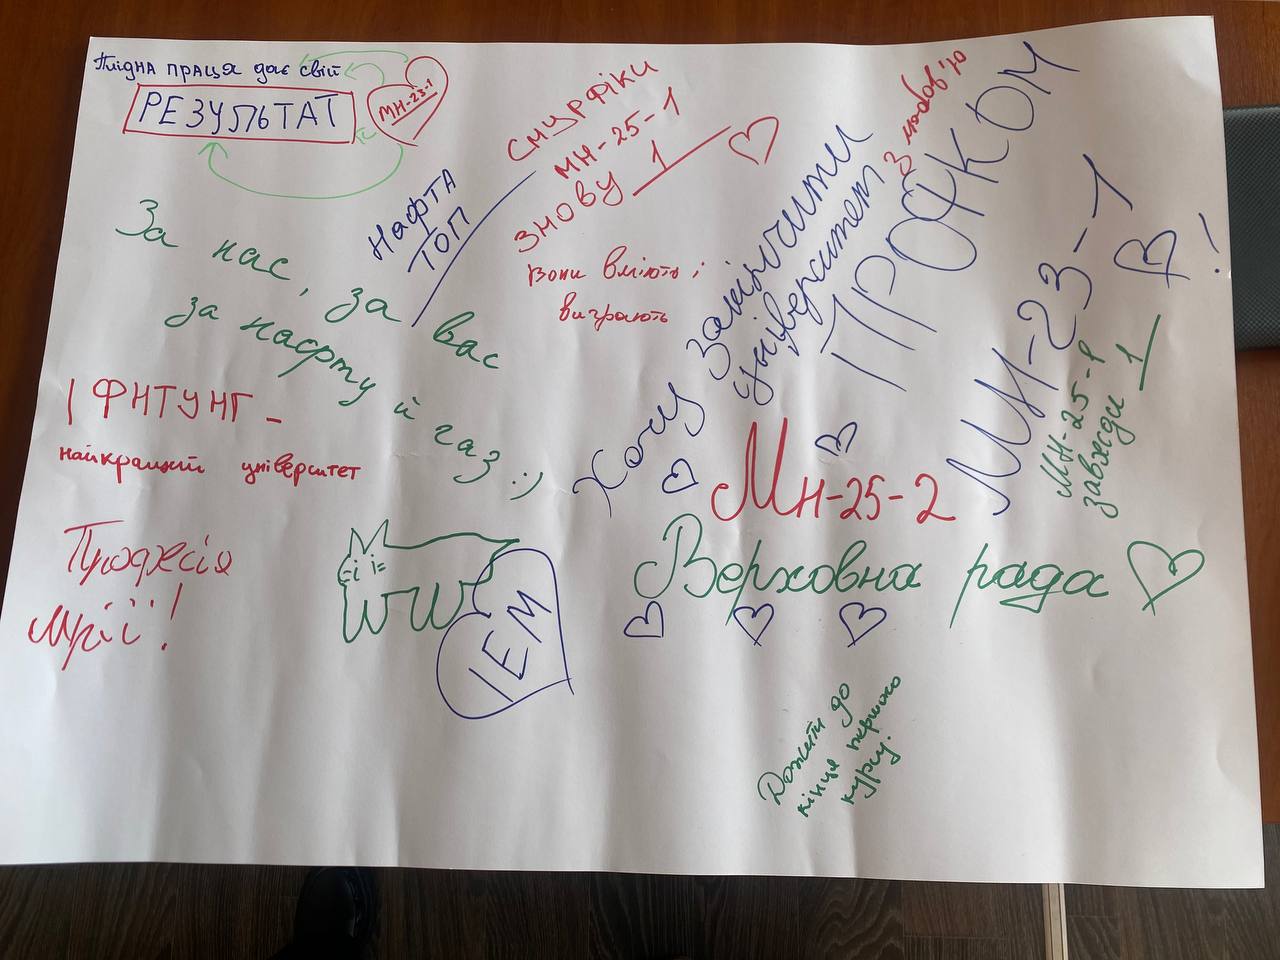 Плідна праця дає свій
РЕЗУЛЬТАТ
МН-23-1
НАФТА
ТОП
СМУРФІКИ
МН-25-1
ЗНОВУ 1
вони вміють і
виграють
За нас, за вас
за нафту й газ :)
ІФНТУНГ -
найкращий університет
Професія
мрії!
ІЕМ
Хочу закінчити
університет
З любов'ю
ПРОФКОМ
МН-23-1
!
МН-25-1
завжди 1
Мн-25-2
Верховна рада
Дожити до
кінця першого
курсу.